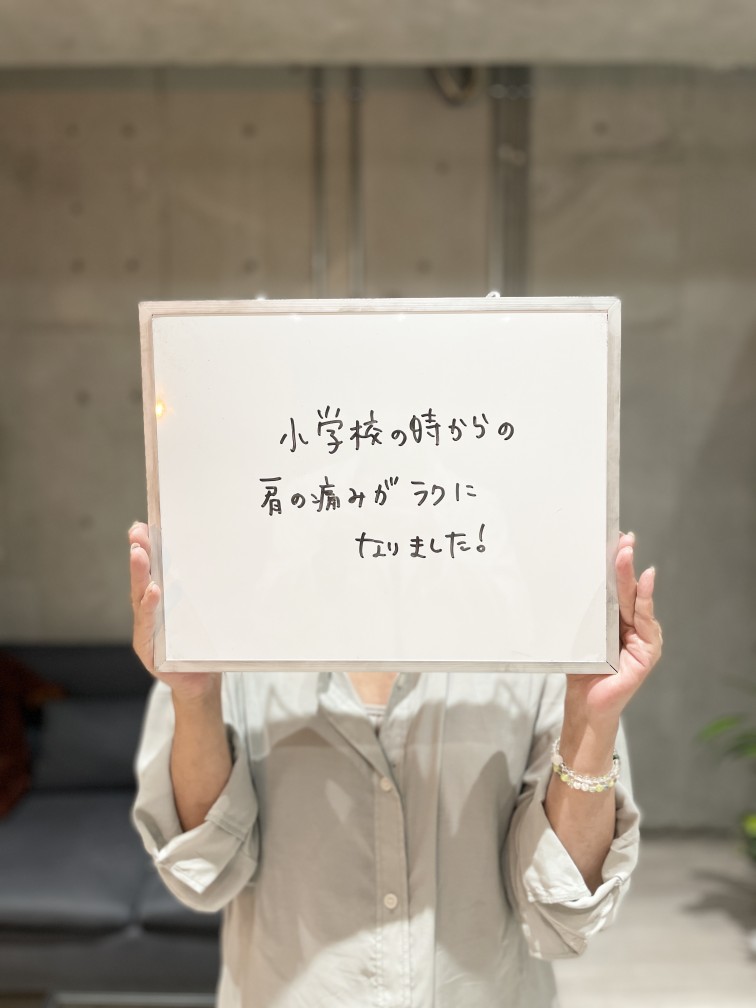 小学校の時からの
肩の痛みがラクに
なりました!